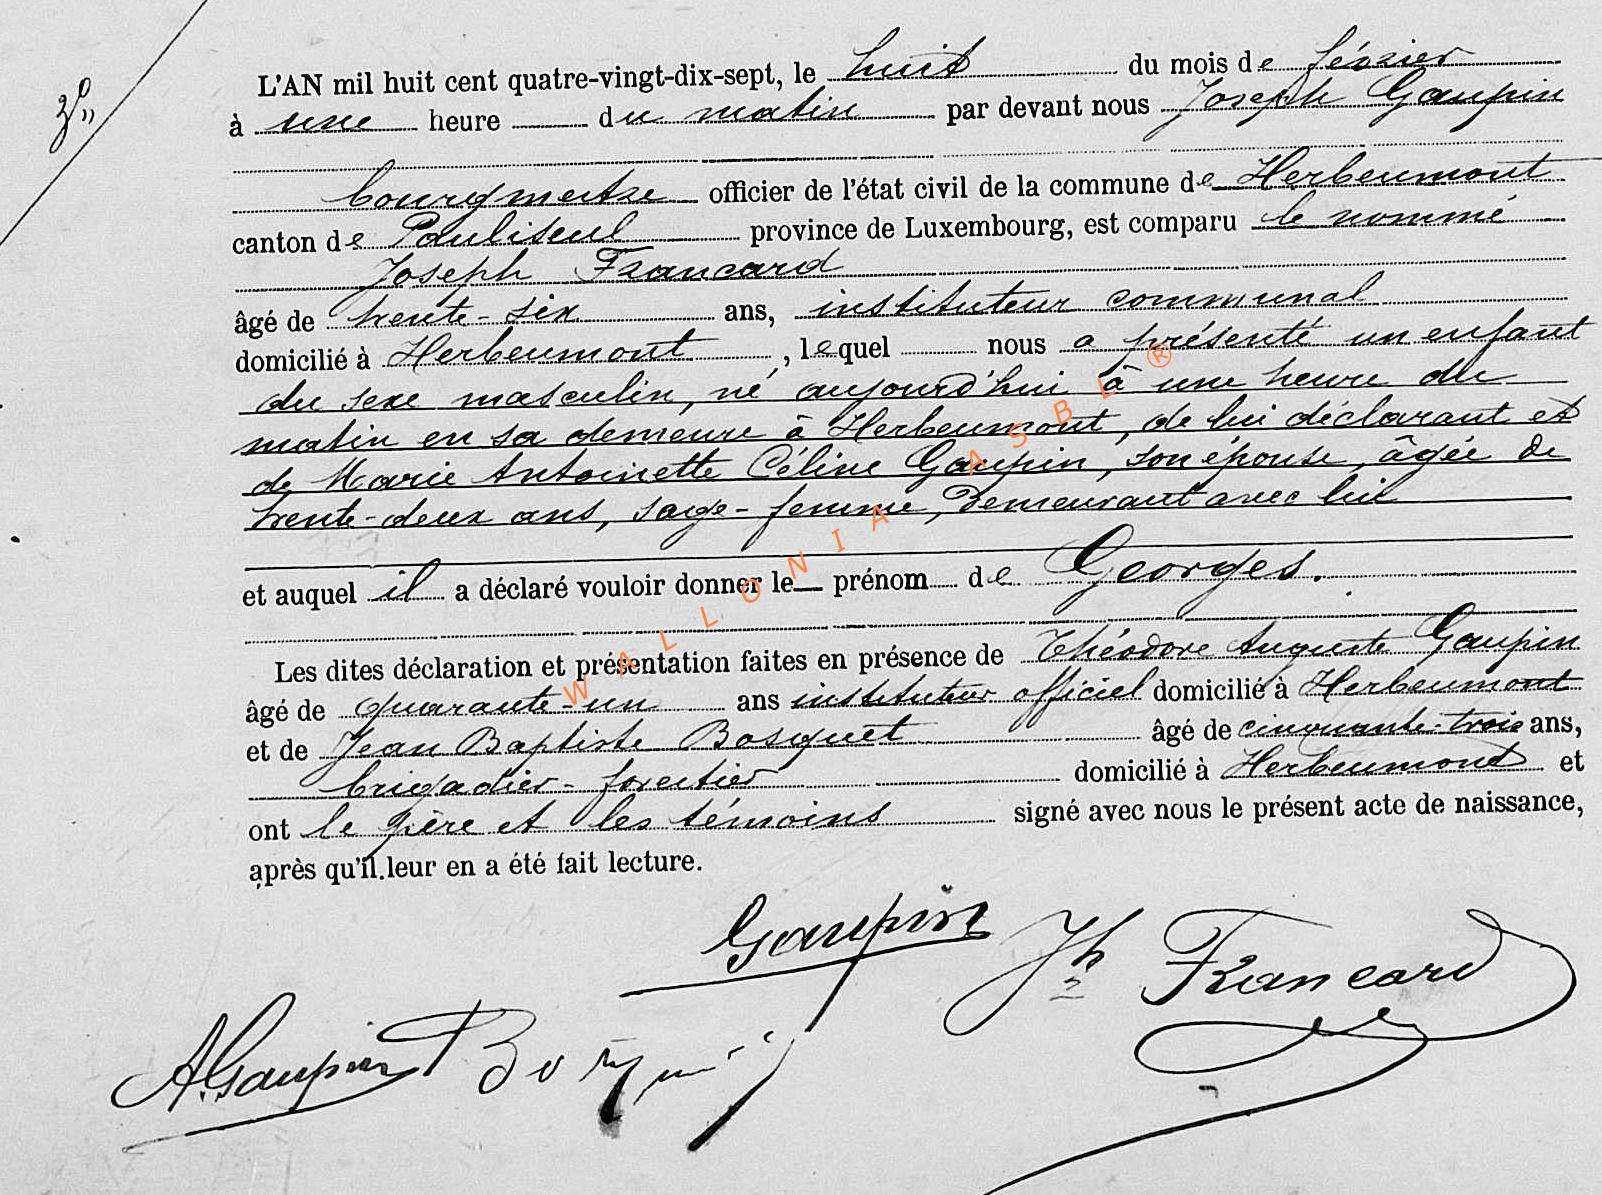 L'AN mil huit cent quatre-vingt-dix-sept, le huit du mois de février
à une heure du matin par devant nous Joseph Gaupin
bourgmestre officier de l'état civil de la commune de Herbeumont
canton de Paliseul province de Luxembourg, est comparu le nommé
Joseph Francard
âgé de trente-six ans, instituteur communal
domicilié à Herbeumont, lequel nous a présenté un enfant
du sexe masculin, né aujourd'hui à une heure du
matin en sa demeure à Herbeumont, de lui déclarant et
de Marie Antoinette Céline Gaupin, son épouse, âgée de
trente-deux ans, sage-femme, demeurant avec lui
et auquel il a déclaré vouloir donner le prénom de Georges.
Les dites déclaration et présentation faites en présence de Théodore Auguste Gaupin
âgé de quarante-un ans instituteur officiel domicilié à Herbeumont
et de Jean Baptiste Bosquet âgé de cinquante-trois ans,
brigadier-forestier domicilié à Herbeumont et
ont le père et les témoins signé avec nous le présent acte de naissance,
après qu'il leur en a été fait lecture.
Gaupin Jh Francard
A. Gaupin Bosquet
WALLONIA ASBL ®